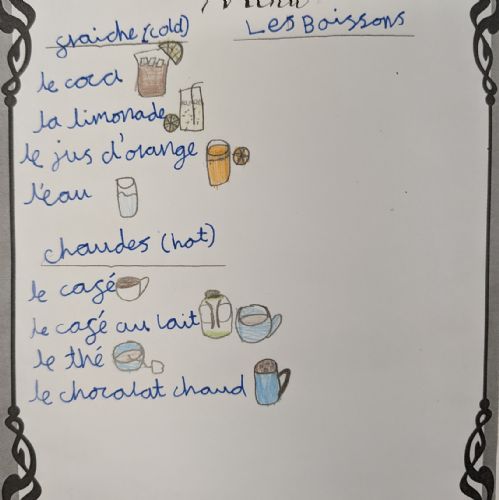 Menu
Les Boissons
graiche (cold)
le coca
la limonade
le jus d'orange
l'eau
chaudes (hot)
le cagé
le cagé au lait
le thé
le chocolat chaud